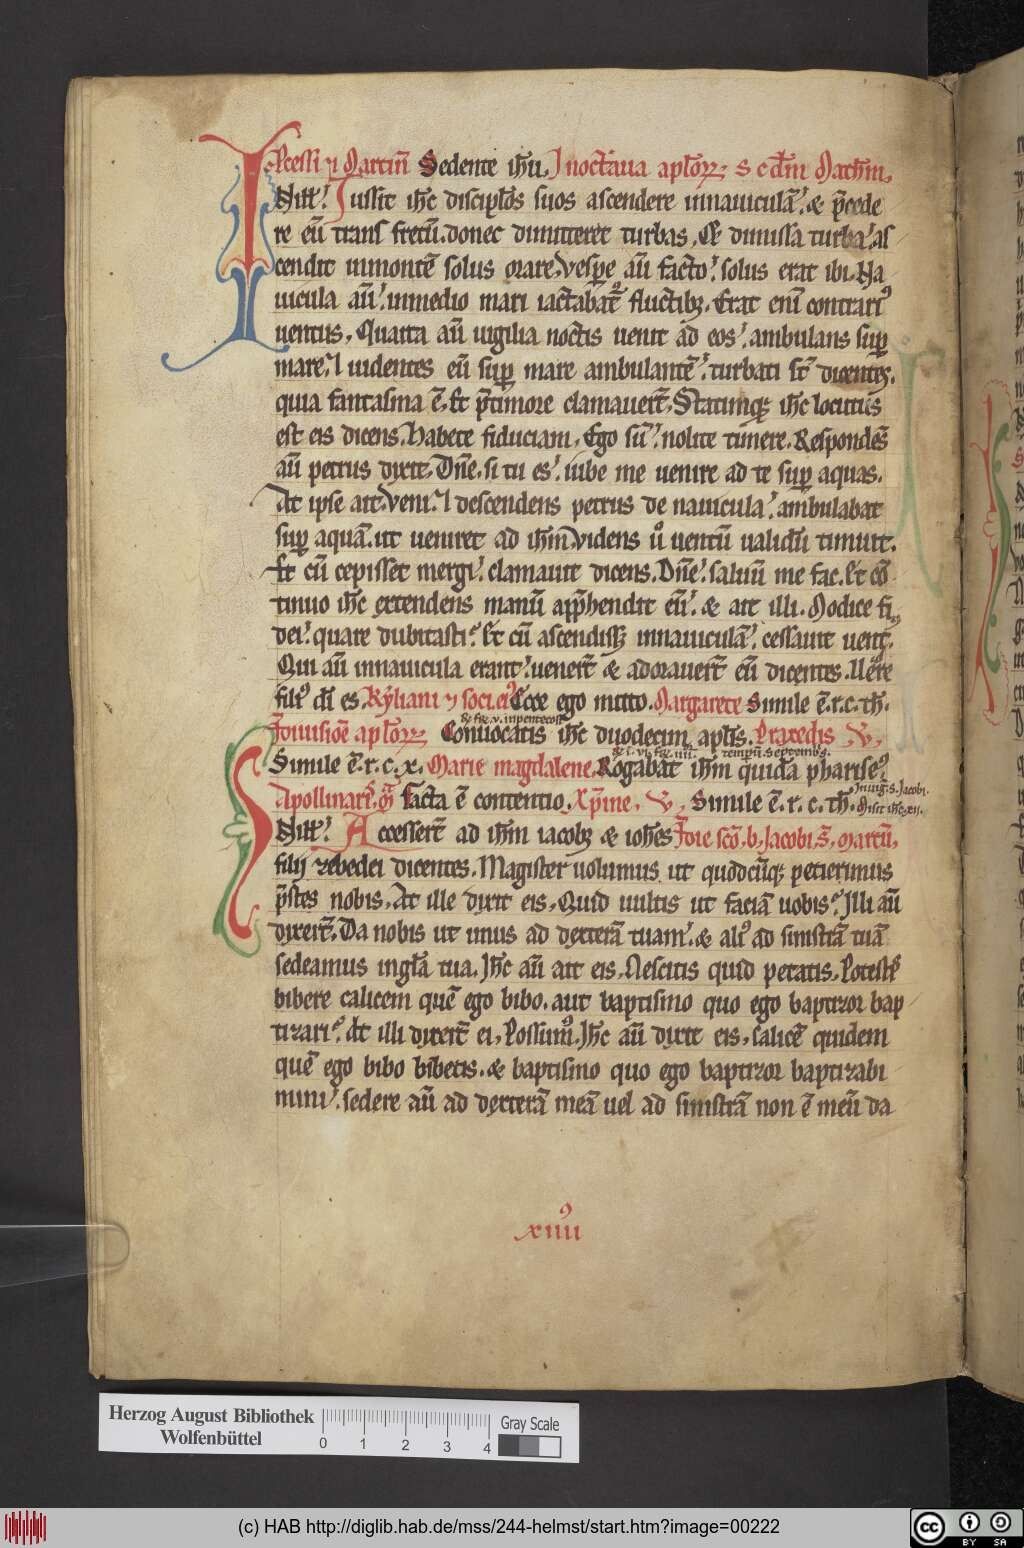 Pcessi ⁊ Martini Sedente ihu. In octaua aplorꝝ. scdm Math̅m.
N ill̅. Iussit ihc̅ discipłos suos ascendere innauiculā. & p̅cede
re eū trans fretū. donec dimitteret turbas. Et dimissa turba. as
cendit inmontē solus orare. Vesp̅e aū facto. solus erat ibi. Na
uicula aū. inmedio mari iactabat᷑ fluctibꝫ. Erat eni̅ contrariꝰ
uentus. Quarta aū uigilia noctis uenit ad eos. ambulans suꝑ
mare. ⁊ uidentes eū suꝑ mare ambulantē. turbati st̅ dicentes.
quia fantasma ē. Et p̅timore clamauer̅t. Statimqꝫ ihc̅ locutus
est eis dicens. Habete fiduciam. Ego sū. nolite timere. Respondēs
aū petrus dixit. Dn̅e. si tu es. iube me uenire ad te suꝑ aquas.
At ipse ait. Veni. ⁊ descendens petrus de nauicula. ambulabat
suꝑ aquā. ut ueniret ad ih̅m. Videns ů uentū ualidū timuit.
Et cū cepisset mergi. clamauit dicens. Dn̅e. saluū me fac. Et cō
tinuo ihc̅ extendens manū app̅hendit eū. & ait illi. Modice fi
dei. quare dubitasti. Et cū ascendissꝫ innauiculā. cessauit uentꝰ.
Qui aū innauicula erant. uener̅t & adorauer̅t eū dicentes. Uere
filiꝰ di̅ es. Kyliani ⁊ soci.eiꝰ Ecce ego mitto. Margarete Simile ē.r.c.th̅.
& fr̅e.v. inpentecost̅
Indiuisiōe aplorꝝ Conuocatis ihc̅ duodecim apłis. Praxedis V.
Simile ē.r.c.x. Marie magdalene. Rogabat ih̅m quida̅ phariseꝰ.
Apollinar̅. Facta ē contentio. Xp̅ine. V. Simile ē.r.c.th̅.
In uig̅.s. Jacobi.
Misit ihc̅.xii.
N ill̅. Accesser̅t ad ih̅m iacobꝫ & ioh̅es In die sc̅i.b. Jacobi. S. Marcū.
filij zebedei dicentes. Magister uolumus ut quodcūqꝫ petierimus
p̅stes nobis. At ille dixit eis. Quid uultis ut faciā uobis. Illi aū
dixer̅t. Da nobis ut unus ad dexterā tuam. & aliꝰ ad sinistrā tuā
sedeamus ingłia tua. Ihc̅ aū ait eis. Nescitis quid petatis. Potestis
bibere calicem quē ego bibo. aut baptismo quo ego baptizor bap
tizari. At illi dixer̅t ei. Possumꝰ. Ihc̅ aū dixit eis. Calicē quidem
quē ego bibo bibetis. & baptismo quo ego baptizor baptizabi
mini. sedere aū ad dexterā meā uel ad sinistrā non ē meū da
xiiiiꝰ
Herzog August Bibliothek
Wolfenbüttel
0 1 2 3 4
Gray Scale
(c) HAB http://diglib.hab.de/mss/244-helmst/start.htm?image=00222
cc BY SA